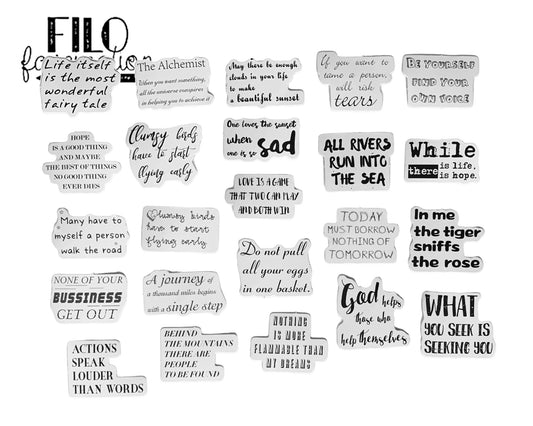 FILO
Life itself
is the most
wonderful
fairy tale
The Alchemist
When you want something,
all the universe conspires
in helping you to achieve it
May there be enough
clouds in your life
to make
a beautiful sunset
If you want to
tame a person,
will risk
tears
BE YOURSELF
FIND YOUR
OWN VOICE
HOPE
IS A GOOD THING
AND MAYBE
THE BEST OF THINGS
NO GOOD THING
EVER DIES
Clumsy birds
have to start
flying early
One loves the sunset
when
one is so sad
ALL RIVERS
RUN INTO
THE SEA
While
there is life,
is hope.
LOVE IS A GAME
THAT TWO CAN PLAY
AND BOTH WIN
Many have to
myself a person
walk the road
Clumsy birds
have to start
flying early
TODAY
MUST BORROW
NOTHING OF
TOMORROW
In me
the tiger
sniffs
the rose
Do not pull
all your eggs
in one basket.
NONE OF YOUR
BUSSINESS
GET OUT
A journey of
a thousand miles begins
with a single step
God helps
those who
help themselves
WHAT
YOU SEEK IS
SEEKING YOU
NOTHING
IS MORE
FLAMMABLE THAN
MY DREAMS
ACTIONS
SPEAK
LOUDER
THAN WORDS
BEHIND
THE MOUNTAINS
THERE ARE
PEOPLE
TO BE FOUND